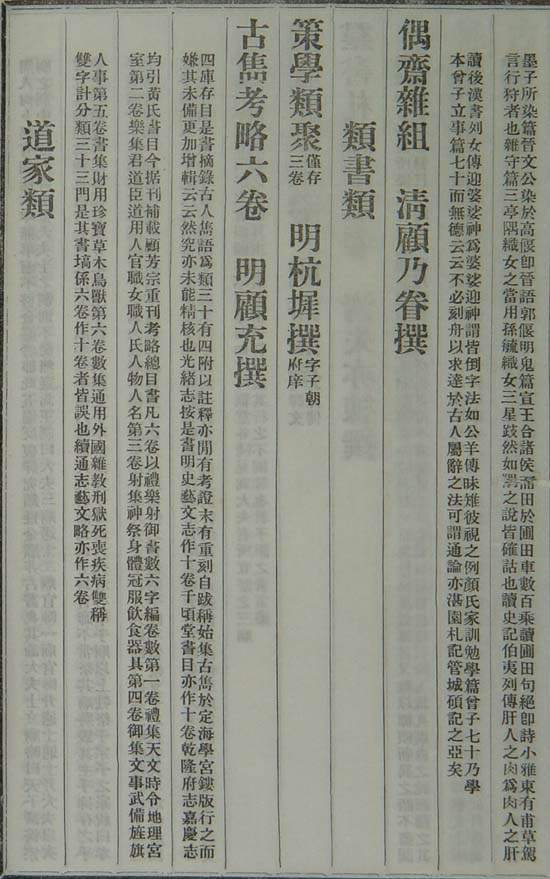 墨子所染篇晉文公染於高偃卽晉語郭偃明鬼篇宣王合諸侯畱田於圃田車數百乘讀圃田句絕卽詩小雅東有甫草駕
言行狩者也雜守篇三亭隅織女之當用孫毓織女三星跂然如之說皆確詁也讀史記伯夷列傳肝人之肉爲肉人之肝
讀後漢書列女傳迎婆娑神爲婆娑迎神謂皆倒字法如公羊傳昧雉彼視之例顏氏家訓勉學篇曾子七十乃學
本曾子立事篇七十而無德云云不必刻舟以求達於古人屬辭之法可謂通論亦湛園札記管城碩記之亞矣
偶齋雜組　清顧乃眷撰
類書類
策學類聚僅存三卷　明杭墀撰字子朝府庠
古雋考略六卷　明顧充撰
四庫存目是書摘錄古人雋語爲類三十有四附以註釋亦閒有考證末有重刻自跋稱始集古雋於定海學宮鏤版行之而
嫌其未備更加增輯云云然究亦未能精核也光緒志按是書明史藝文志作十卷千頃堂書目亦作十卷乾隆府志嘉慶志
均引黃氏書目今据刊補載顧芳宗重刊考略總目書凡六卷以禮樂射御書數六字編卷數第一卷禮集天文時令地理宮
室第二卷樂集君道臣道用人官職女職人氏人物人名第三卷射集神祭身體冠服飲食器具第四卷御集文事武備旌旗
人事第五卷書集財用珍寶草木鳥獸第六卷數集通用外國雜敎刑獄死喪疾病雙稱
雙字計分類三十三門是其書塙係六卷作十卷者皆誤也續通志藝文略亦作六卷
道家類